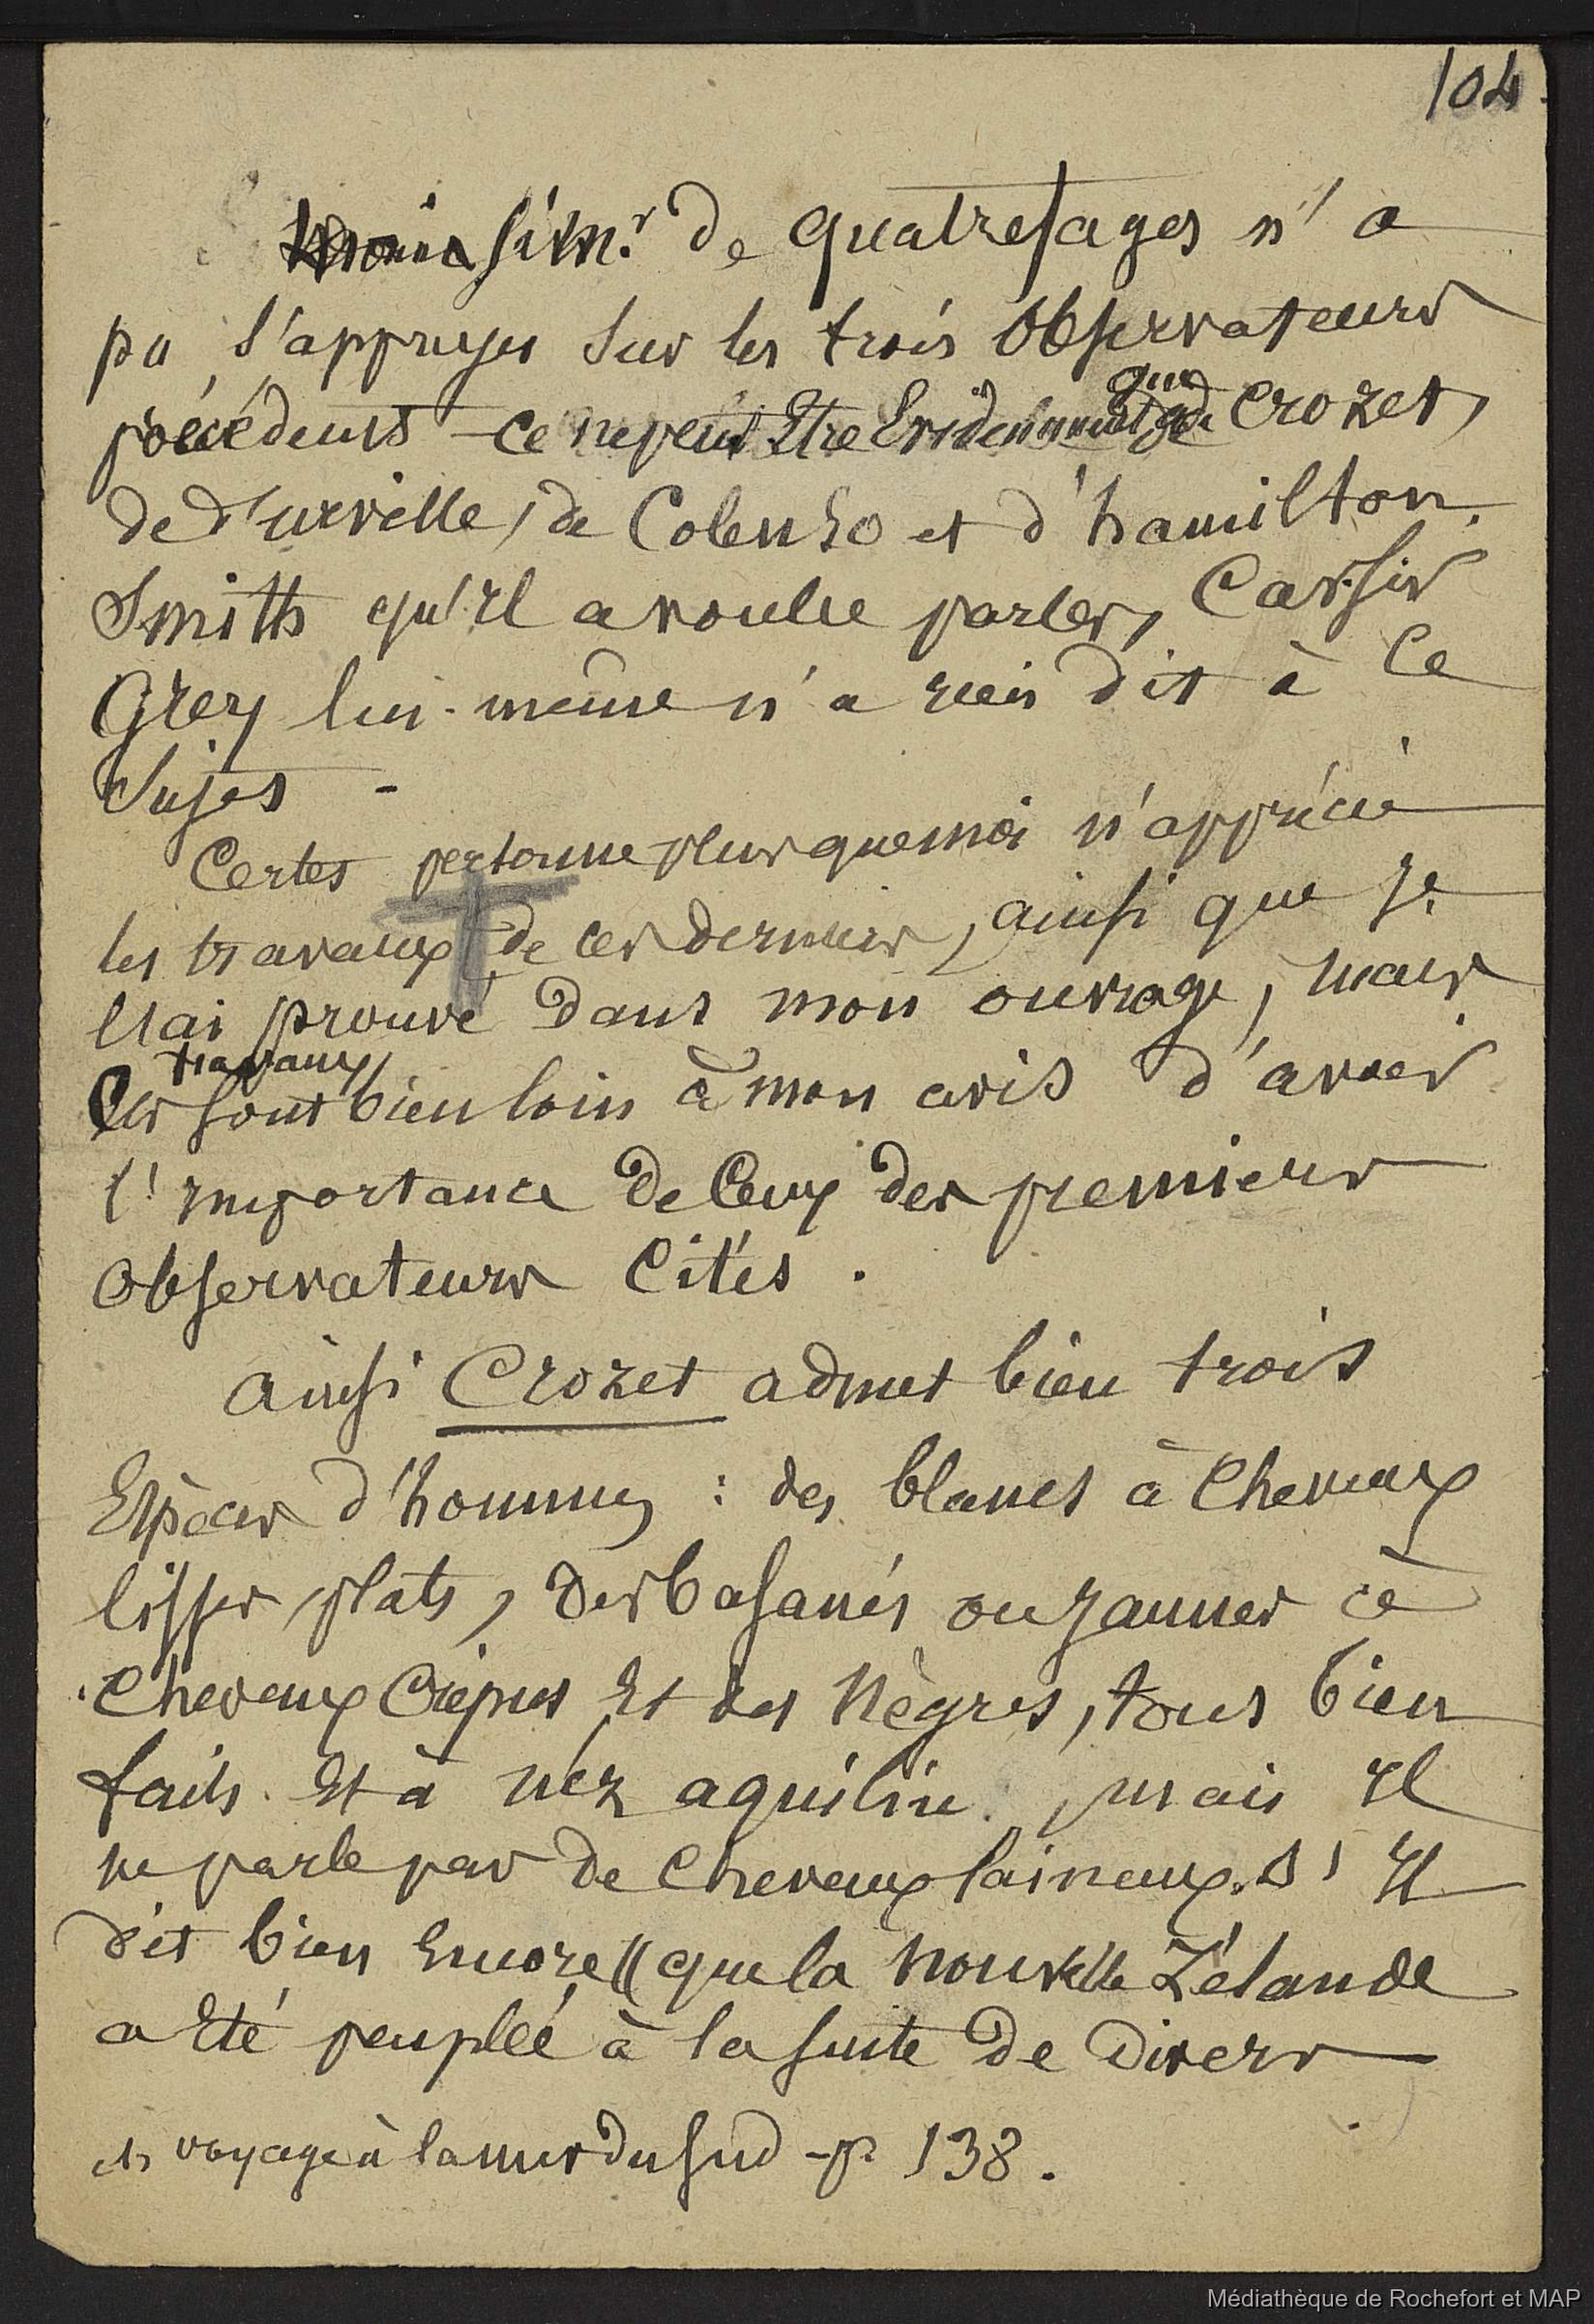 104
si Mr. de quatrefages n'a
pu s'appuyer sur les trois observateurs
précédents ce ne peut être évidemment que
de Crozet,
de d'urville, de Colenso et d'hamilton
Smith qu'il a voulu parler, Car sir
Grey lui-même n'a rien dit à Ce
Sujet -
Certes personne plus que moi n'apprécie
les travaux de ces derniers, ainsi que je
l'ai prouvé dans mon ouvrage, mais
travaux
Ces sont bien loin à mon avis d'avoir
l'importance de Ceux des premiers
observateurs Cités.
ainsi Crozet admet bien trois
Espèces d'hommes : des blancs à Cheveux
lisses, plats, des basanés ou jaunes à
Cheveux Crépus Et des Nègres, tous bien
faits Et à néz aquilin, mais il
ne parle pas de Cheveux laineux. S'il
dit bien Encore (( que la nouvelle Zélande
a Eté peuplée à la suite de divers
(1) voyage à la mer du Sud - p. 138.
Médiathèque de Rochefort et MAP